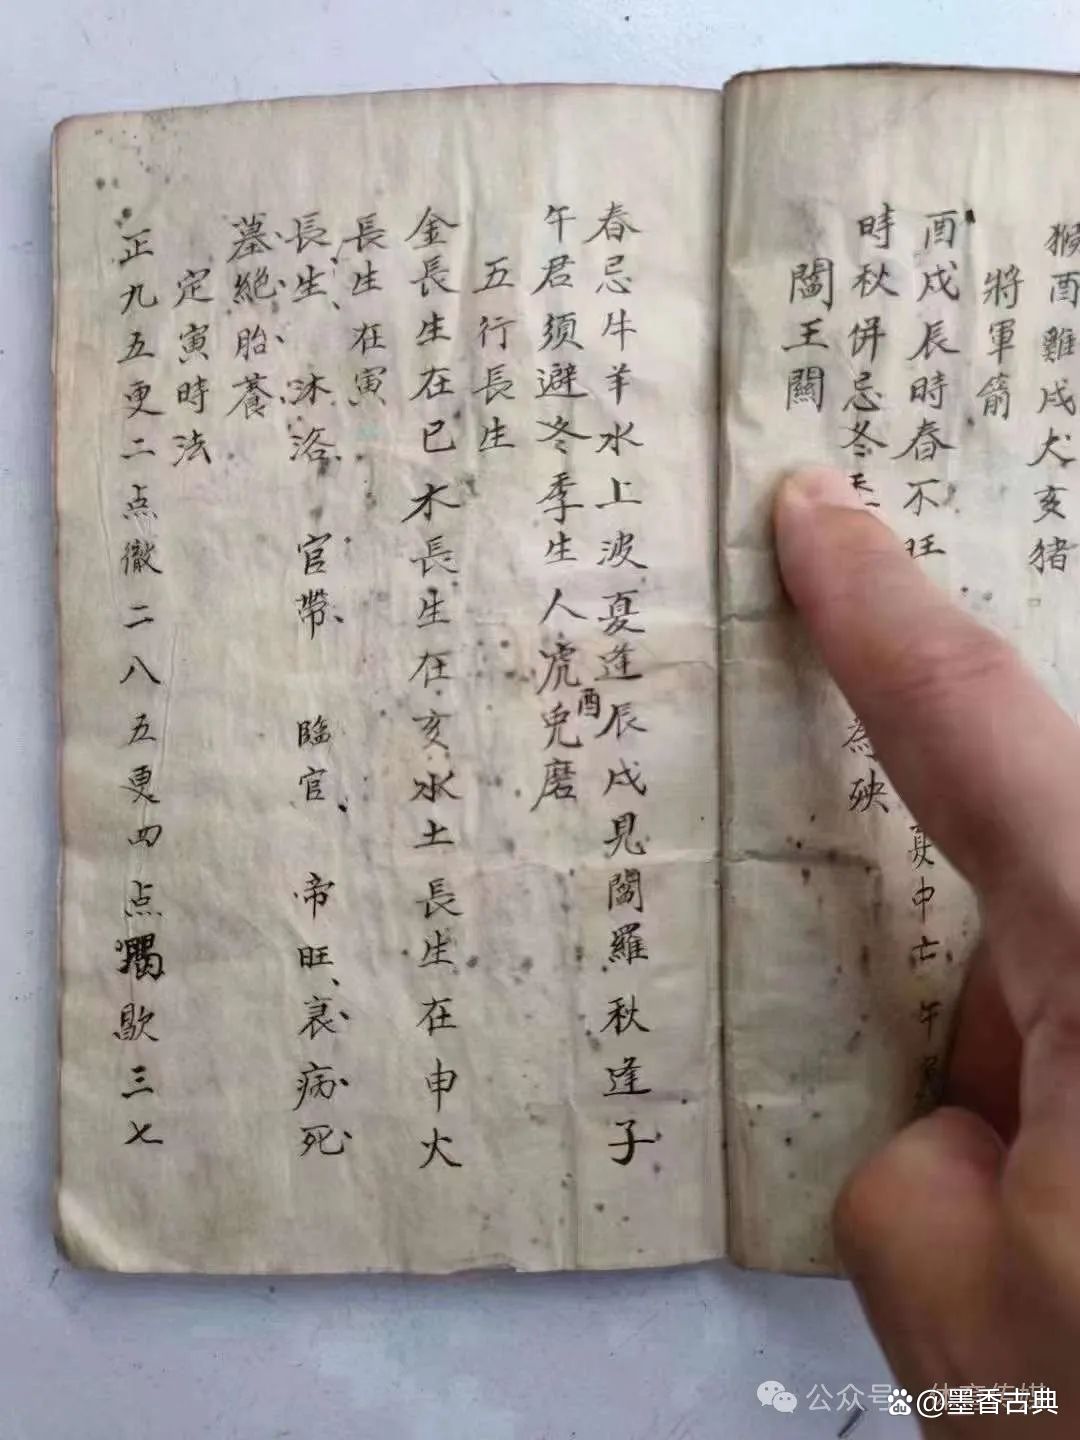 猴酉雞戌犬亥猪
將軍箭
酉戌辰時春不旺
夏中亡
午
時秋併忌冬
為殃
閻王關
春忌牛羊水上波夏逢辰戌見閻羅秋逢子
午君須避冬季生人虎兔磨
酉
五行長生
金長生在巳木長生在亥水土長生在申火
長生在寅
長生、沐洛、官帶、臨官、帝旺、衰病死
墓絕胎養
定寅時法
正九五更二点徹二八五更四点歇三七
公众号
@墨香古典